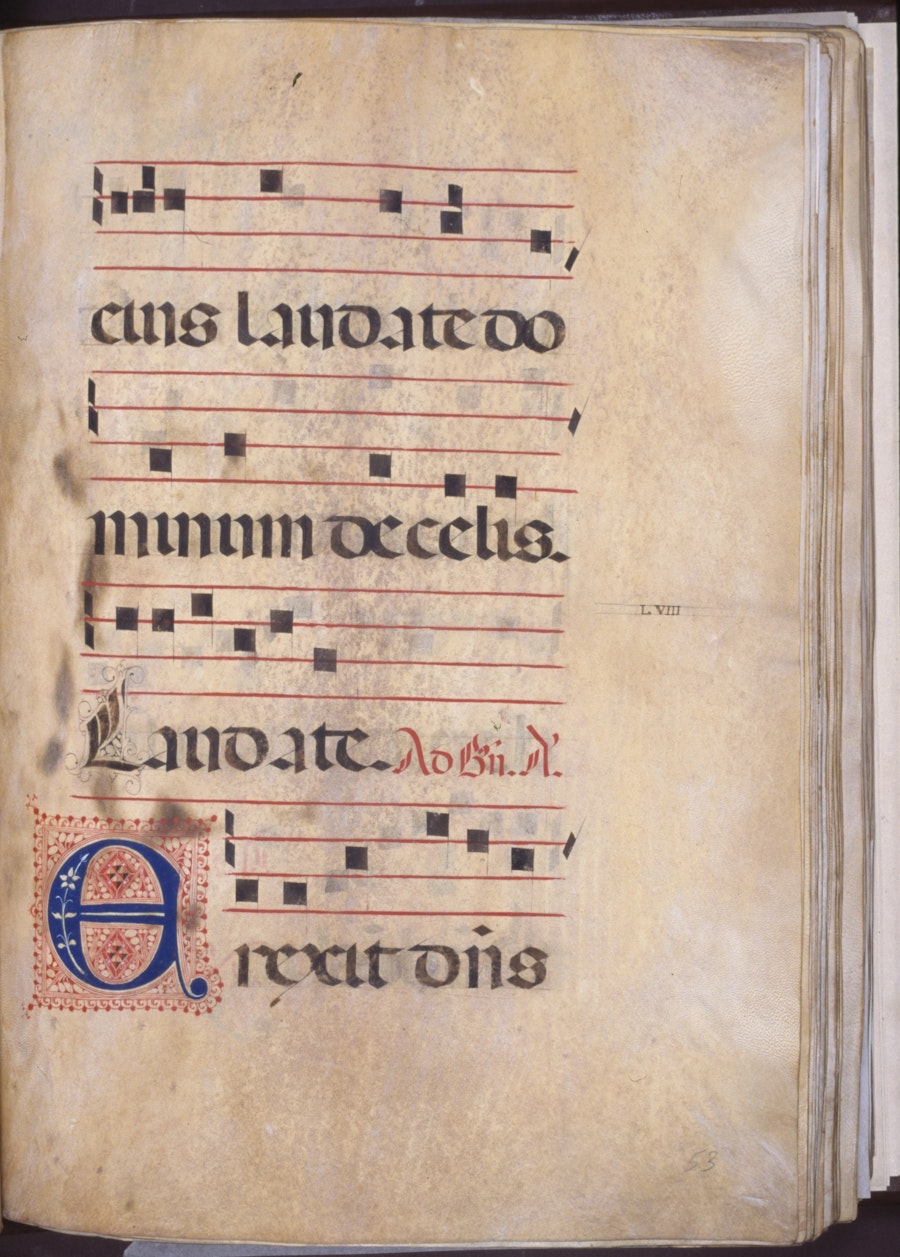 eius laudate do
minum de celis.
L. VIII
Laudate. Ad Bn̄. A.
Erexit dn̄s
53